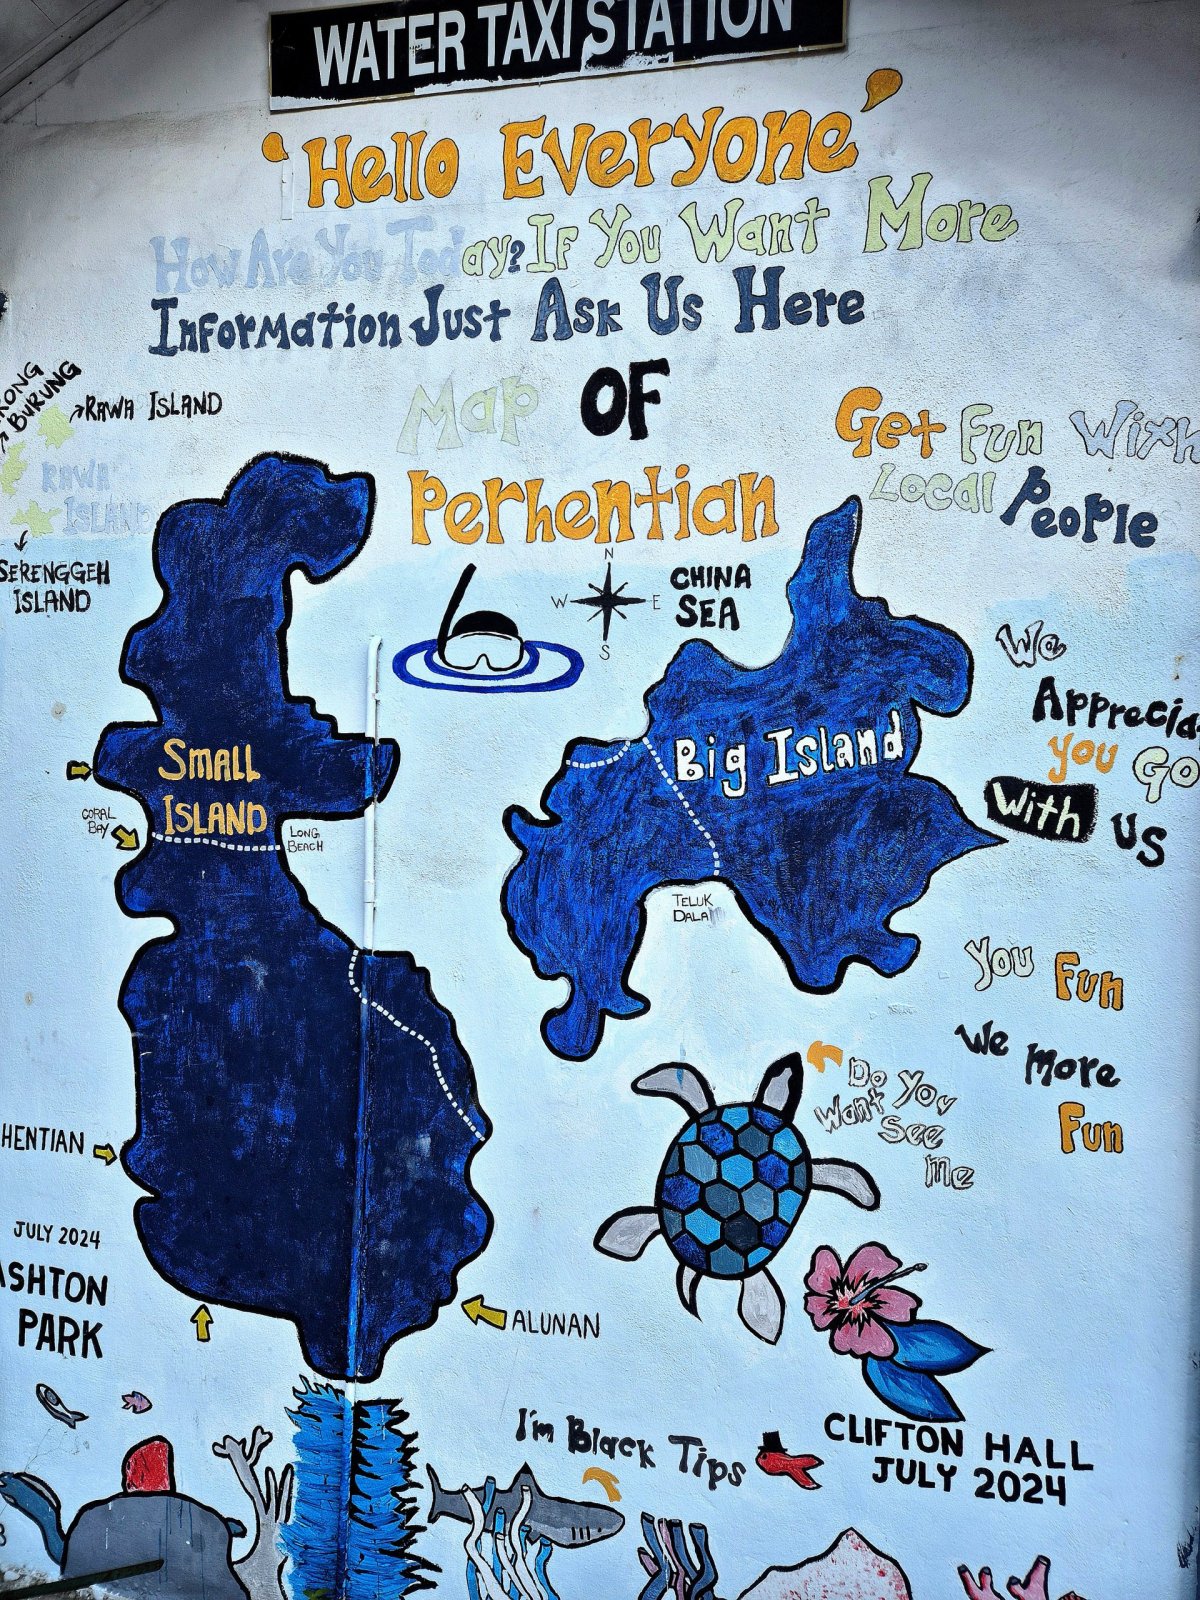 WATER TAXI STATION
'Hello Everyone'
How Are You Today? If You Want More
Information Just Ask Us Here
BURUNG
RAWA ISLAND
RAWA
ISLAND
SERENGGEH
ISLAND
Map OF
Perhentian
Get Fun With
Local People
N
W E
S
CHINA
SEA
We
Appreciat
you Go
With US
SMALL
ISLAND
CORAL
BAY
LONG
BEACH
Big Island
TELUK
DALA
You Fun
We More
Fun
Do You
Want
See
Me
HENTIAN
JULY 2024
SHTON
PARK
ALUNAN
I'm Black Tips
CLIFTON HALL
JULY 2024